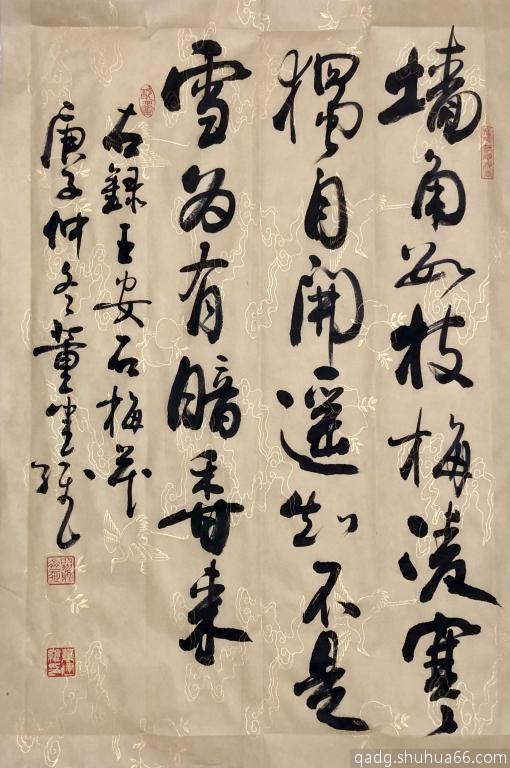 墙角数枝梅凌寒
独自开遥知不是
雪为有暗香来
右录王安石梅花
庚子仲冬董
qadg.shuhua66.com